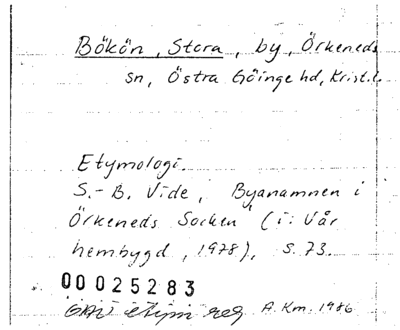 Bökön, Stora, by, Örkeneds
sn, Östra Göinge hd, Krist.l.
Etymologi.
S.-B. Vide, Byanamnen i
Örkeneds Socken (i: Vår
hembygd, 1978), s. 73.
00025283
reg A. Km. 1986